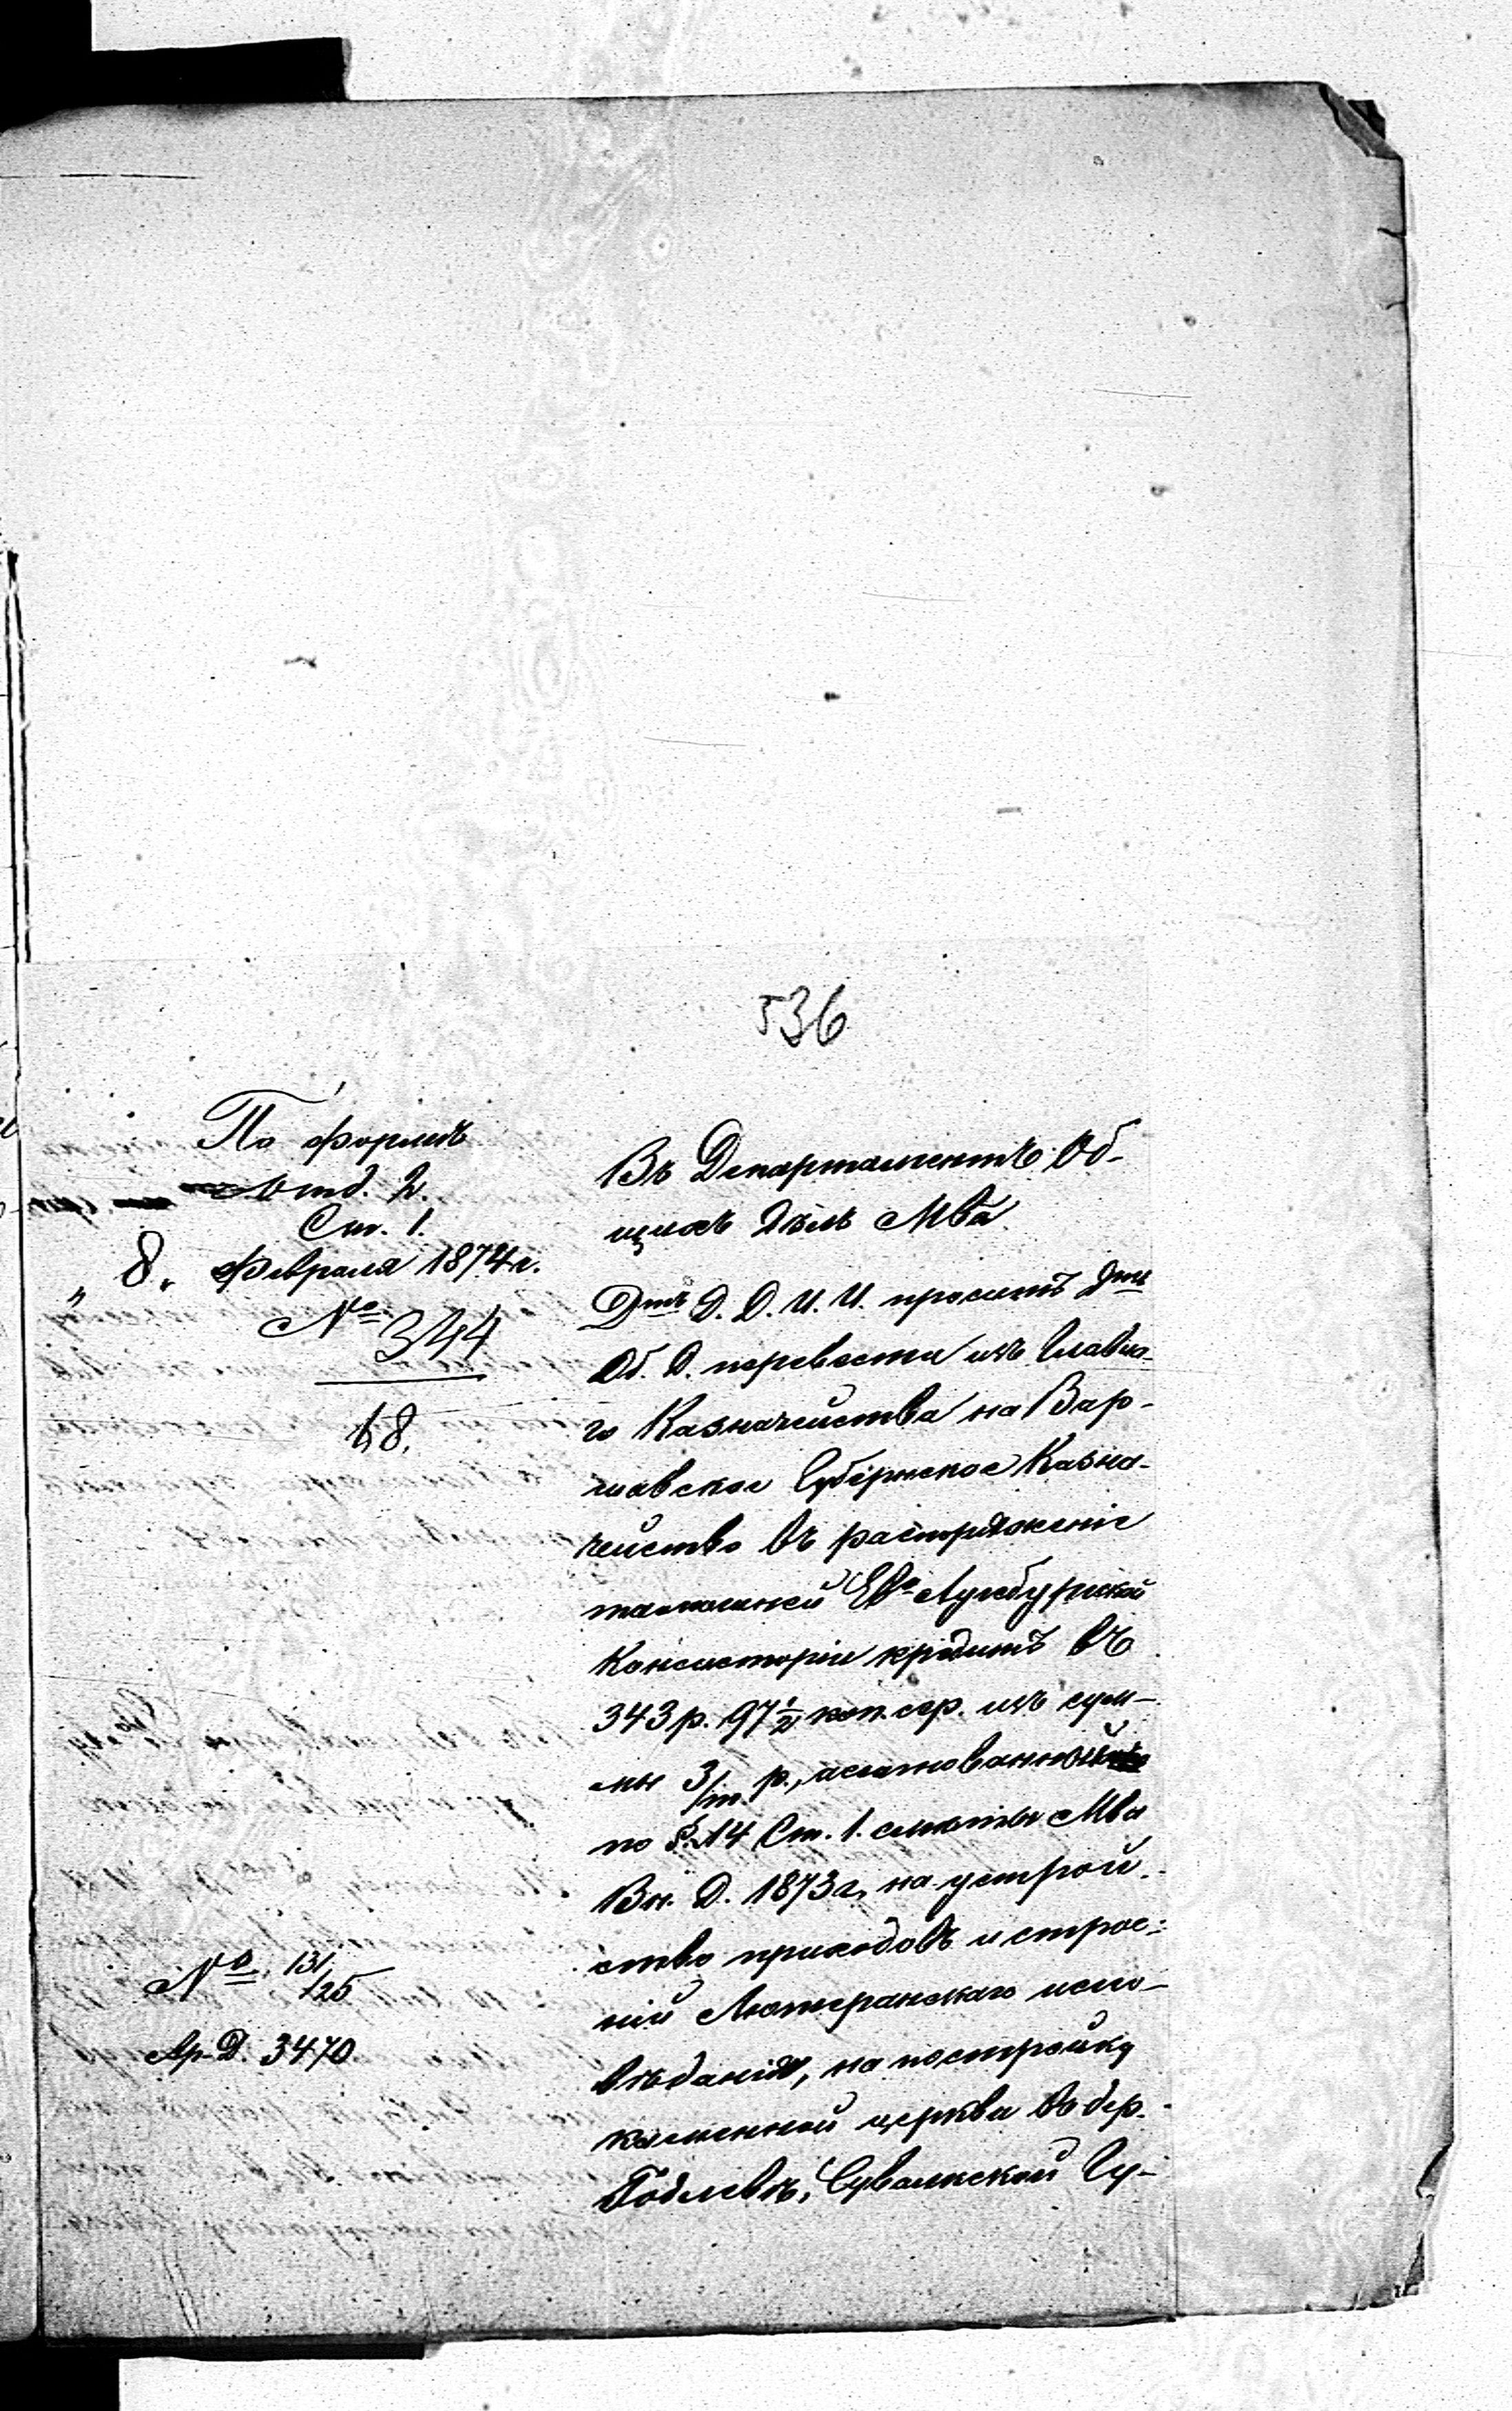 536
По формѣ
Отд. 2.
Ст. 1.
„ 8 „ Февраля 1874 г.
№ 344
18.
№ 131/125
Ар. Д. 3470
Въ Департаментъ Об-
щихъ дѣлъ Мва.
Дтъ Д. Д. И. И. проситъ Дтъ
Об. Д. перевести изъ Главна-
го Казначейства на Вар-
шавское Губернское Казна-
чейство въ распоряженіе
тамошней Ево Аугсбургской
Консисторіи кредитъ въ
343 р. 97 1/2 коп. сер. изъ сум-
мы 3/т. р., ассигнованной
по §. 14 Ст. 1. смѣты Мва
Вн. Д. 1873 г. на устрой-
ство приходовъ и строе-
ній Лютеранскаго испо-
вѣданія, на постройку
каменной церкви въ дер.
Годлевѣ, Сувалкской Гу-